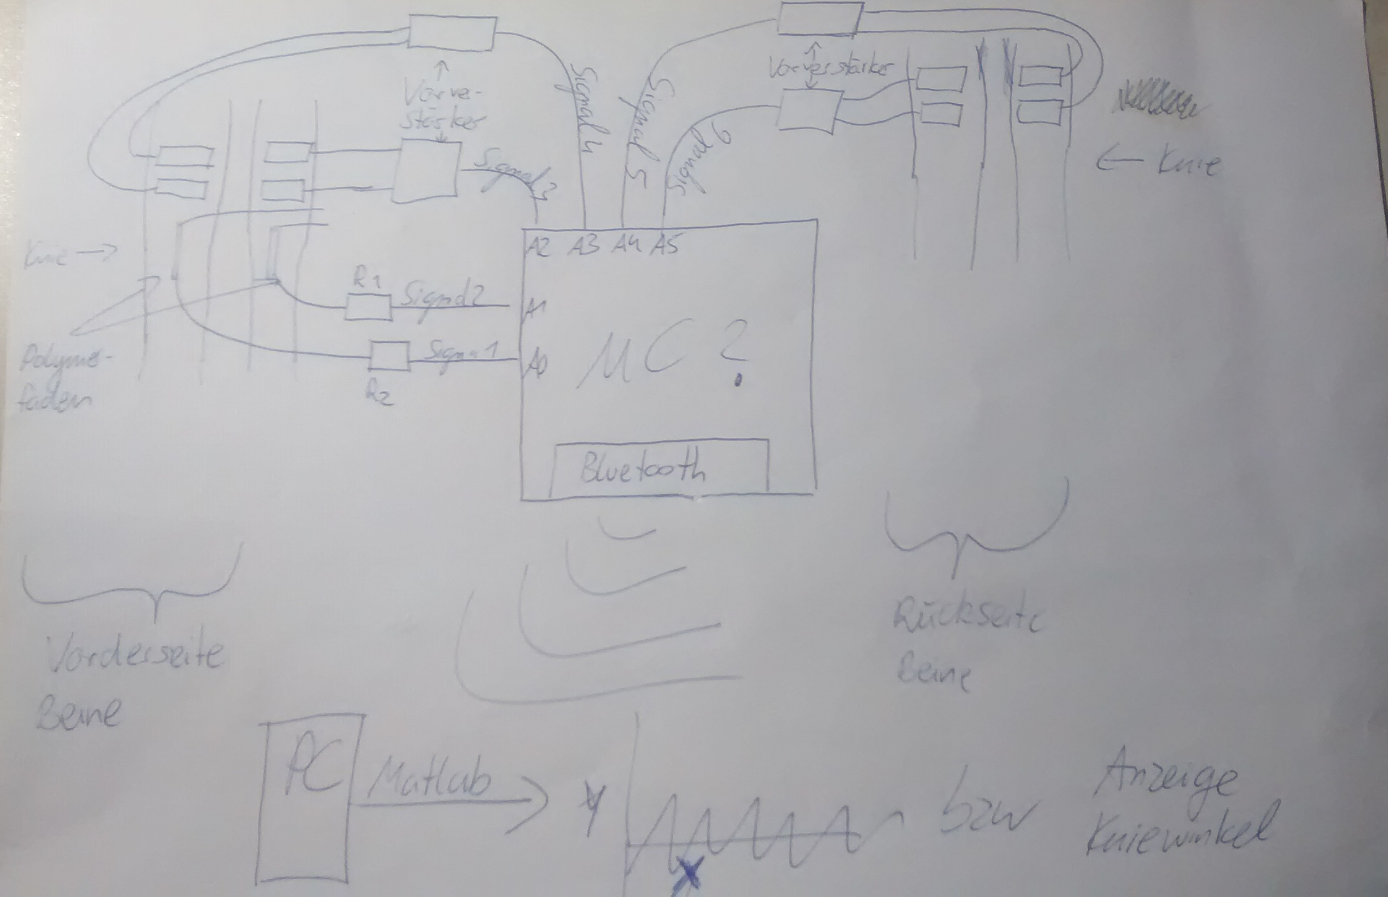 Vorve-
stärker
Signal 4
Signal 3
Signal 5
Signal 6
Vorverstärker
← Knie
Knie →
A2 A3 A4 A5
R1
Signal 2
A1
Signal 1
A0
R2
Polymer-
fäden
µC ?
Bluetooth
Vorderseite
Beine
Rückseite
Beine
PC
Matlab
y
x
bzw
Anzeige
Kniewinkel